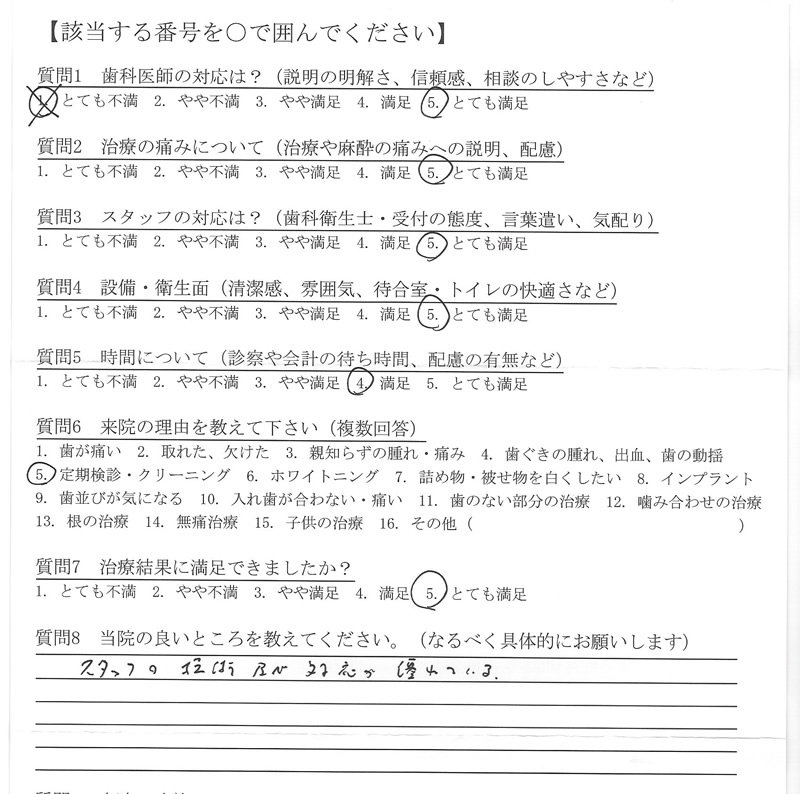 【該当する番号を○で囲んでください】
質問1 歯科医師の対応は？（説明の明解さ、信頼感、相談のしやすさなど）
1. とても不満 2. やや不満 3. やや満足 4. 満足 5. とても満足
質問2 治療の痛みについて（治療や麻酔の痛みへの説明、配慮）
1. とても不満 2. やや不満 3. やや満足 4. 満足 5. とても満足
質問3 スタッフの対応は？（歯科衛生士・受付の態度、言葉遣い、気配り）
1. とても不満 2. やや不満 3. やや満足 4. 満足 5. とても満足
質問4 設備・衛生面（清潔感、雰囲気、待合室・トイレの快適さなど）
1. とても不満 2. やや不満 3. やや満足 4. 満足 5. とても満足
質問5 時間について（診察や会計の待ち時間、配慮の有無など）
1. とても不満 2. やや不満 3. やや満足 4. 満足 5. とても満足
質問6 来院の理由を教えて下さい（複数回答）
1. 歯が痛い 2. 取れた、欠けた 3. 親知らずの腫れ・痛み 4. 歯ぐきの腫れ、出血、歯の動揺
5. 定期検診・クリーニング 6. ホワイトニング 7. 詰め物・被せ物を白くしたい 8. インプラント
9. 歯並びが気になる 10. 入れ歯が合わない・痛い 11. 歯のない部分の治療 12. 噛み合わせの治療
13. 根の治療 14. 無痛治療 15. 子供の治療 16. その他（ ）
質問7 治療結果に満足できましたか？
1. とても不満 2. やや不満 3. やや満足 4. 満足 5. とても満足
質問8 当院の良いところを教えてください。（なるべく具体的にお願いします）
スタッフの技術及び対応が優れている.